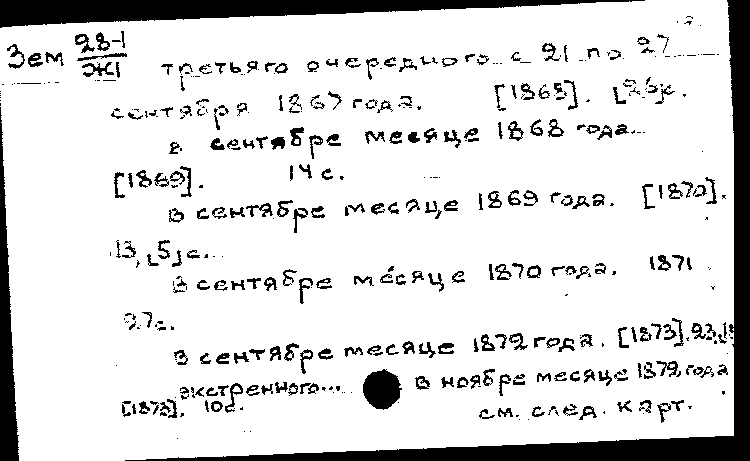 Зем 28-1
ЭЖ1
третьяго очередного с 21 по 27
сентября 1867 года. [1868]. [26]с.
в сентябре месяце 1868 года...
[1869]. 14 с.
В сентябре месяце 1869 года. [1870].
13, [5] с.
В сентябре месяце 1870 года. 1871
27с.
В сентябре месяце 1872 года. [1873]. 23,
экстренного... В ноябре месяце 1872 года
[1873]. 10с.
см. след. карт.